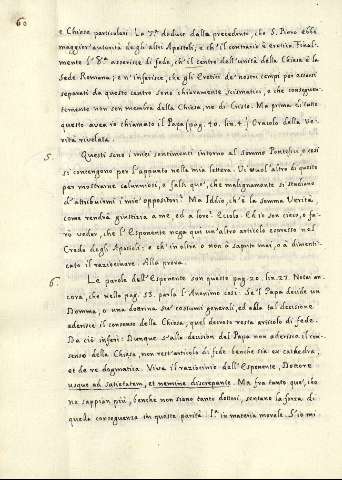 60
e Chiese particolari. La 7.ª deduce dalla precedente, che S. Piero ebbe
maggior' autorità degli altri Apostoli, e ch'il contrario è eretico. Final-
mente l' 8.ª asserisce di fede, ch'il centro dell'unità della Chiesa è la
Sede Romana; e n'inferisce, che gli Eretici de' nostri tempi per essersi
separati da questo centro sono chiaramente scismatici, e che conseguen-
temente non son membra della Chiesa, nè di Cristo. Ma prima di tutto
questo aveva chiamato il Papa (pag. 40. lin. 4.) Oracolo della Ve-
rità rivelata.
5. Questi sono i miei sentimenti intorno al sommo Pontefice, e così
si contengono per l'appunto nella mia lettera. Vi vuol'altro di questo
per mostrarne calunniosi, e falsi que', che malignamente si studiano
d'attribuirmi i miei oppositori? Ma Iddio, ch'è la somma Verità,
come renderà giustizia a me, ed a loro? Ed io son cieco, o fa-
rò veder, che l'Esponente nega qui un'altro articolo contesto nel
Credo degli Apostoli; e ch'in oltre o non à saputo mai, o à dimenti-
cato il raziocinare. Alla prova.
6. Le parole dell'Esponente son queste pag. 20. lin. 27. Notai an-
cora, che nella pag. 53. parla l'Anonimo così: Se il Papa decide un
Domma, o una dottrina su' costumi generali, ed alla tal decisione
aderisce il consenso della Chiesa, quel decreto resta articolo di fede.
Da ciò inferì: Dunque s'alle decisioni del Papa non aderisce il con-
senso della Chiesa, non rest'articolo di fede benchè sia ex cathedra,
et de re dogmatica. Viva il raziocinio dell'Esponente, Dottore
usque ad satietatem, et nemine discrepante. Ma fra tanto que', che
ne sappian più, benchè non siano tanto dottori, sentano la forza di
queda conseguenza in questa parità. I.ª in materia morale. S'io mi